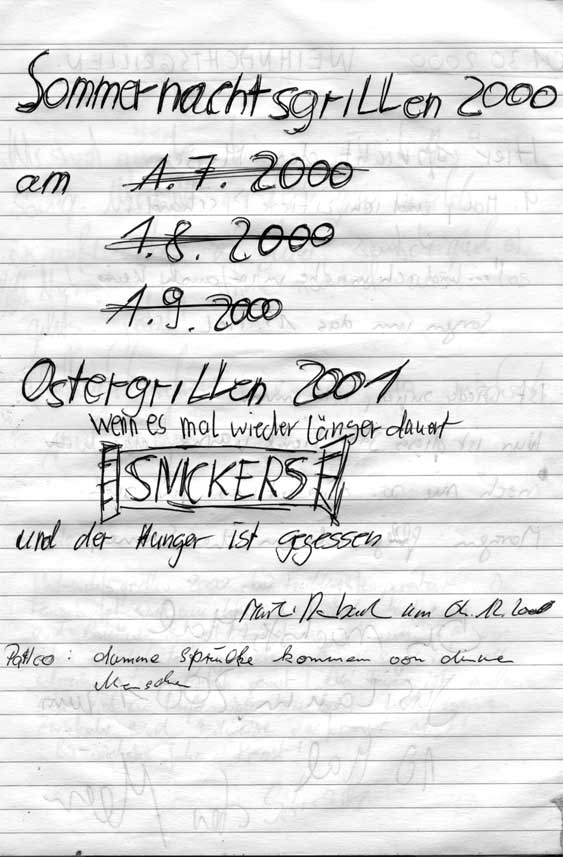 Sommernachtsgrillen 2000
am 1.7. 2000
1.8. 2000
1.9. 2000
Ostergrillen 2001
wenn es mal wieder länger dauert
SNICKERS
und der Hunger ist gegessen
am 01.12.2000
Patico: dumme Sprüche kommen von dumme
Menschen